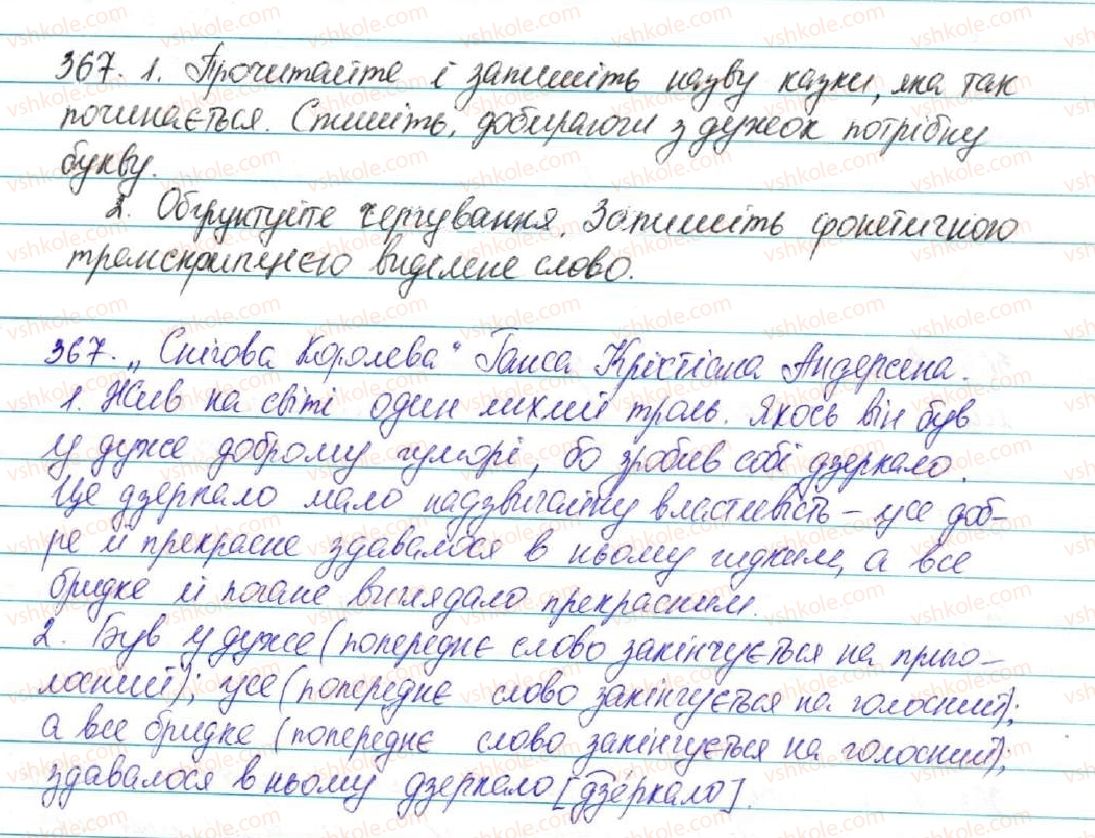 367. 1. Прочитайте і запишіть назву казки, яка так
починається. Спишіть, добираючи з дужок потрібну
букву.
2. Обґрунтуйте чергування. Запишіть фонетичною
транскрипцією виділене слово.
367. „Снігова Королева“ Ганса Крістіана Андерсена.
1. Жив на світі один лихий троль. Якось він був
у дуже доброму гуморі, бо зробив собі дзеркало.
Це дзеркало мало надзвичайну властивість – усе доб-
ре й прекрасне здавалося в ньому гидким, а все
бридке й погане виглядало прекрасним.
2. Був у дуже (попереднє слово закінчується на приго-
лосний); усе (попереднє слово закінчується на голосний);
а все бридке (попереднє слово закінчується на голосний);
здавалося в ньому дзеркало [дзе́ркало].
vshkole.com